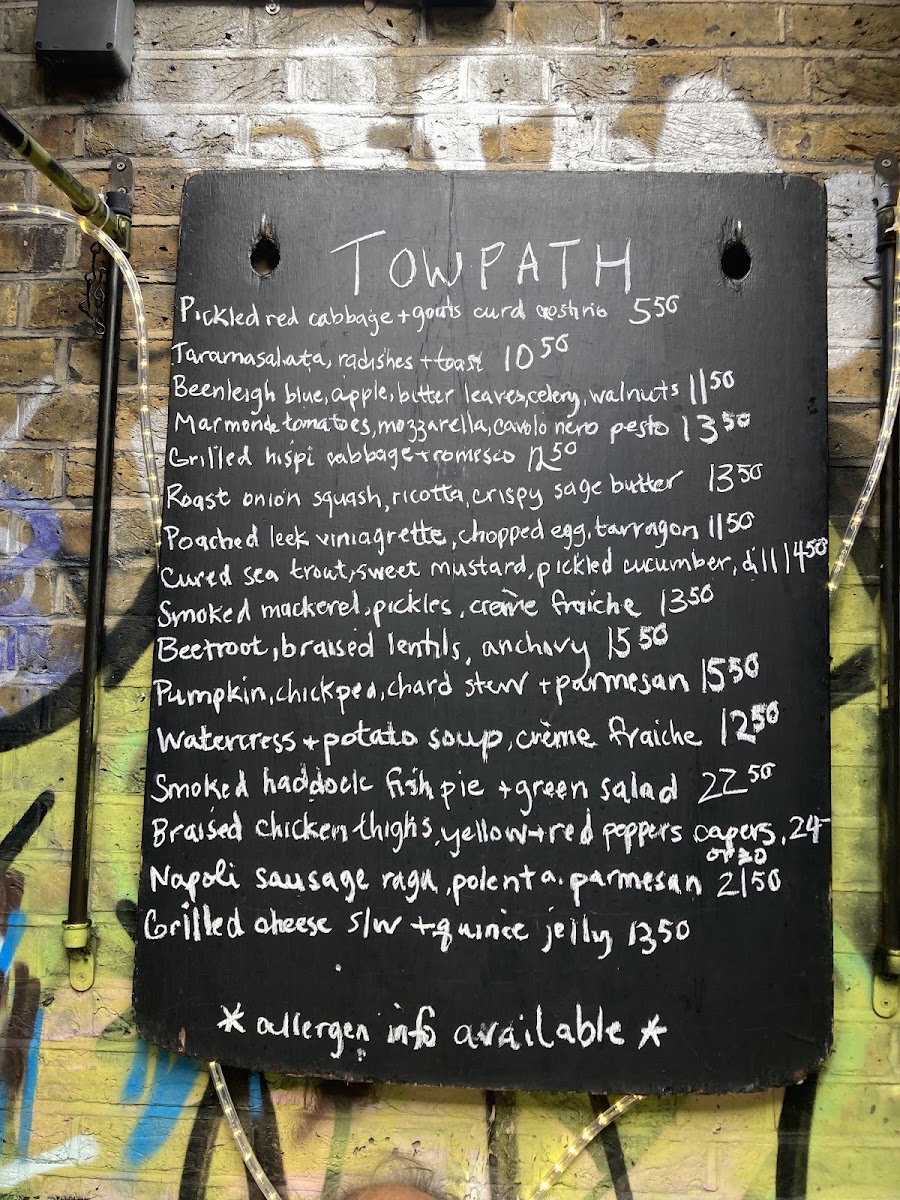 TOWPATH
Pickled red cabbage + goats curd crostino 5 50
Taramasalata, radishes + toast 10 50
Beenleigh blue, apple, butter leaves, celery, walnuts 11 50
Marmonde tomatoes, mozzarella, cavolo nero pesto 13 50
Grilled hispi cabbage + romesco 12 50
Roast onion squash, ricotta, crispy sage butter 13 50
Poached leek viniagrette, chopped egg, tarragon 11 50
Cured sea trout, sweet mustard, pickled cucumber, dill 14 50
Smoked mackerel, pickles, crème fraiche 13 50
Beetroot, braised lentils, anchovy 15 50
Pumpkin, chickpea, chard stew + parmesan 15 50
Watercress + potato soup, crème fraiche 12 50
Smoked haddock fish pie + green salad 22 50
Braised chicken thighs, yellow + red peppers capers, 24-
orzo
Napoli sausage ragu, polenta. parmesan 21 50
Grilled cheese s/w + quince jelly 13 50
* allergen info available *